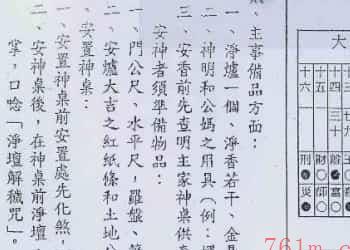 大
十六
十五
十四
十三
三十
九
刑
財
官
災
師
富
主事備品方面：
一、淨爐一個、淨香若干、金
二、神明和公媽之用具（例：
三、安香前先查明主家神桌供
安神者須準備物品：
一、門公尺、水平尺，羅盤、
二、安爐大吉之紅紙條和土地公
安置神桌：
一、安置神桌前安置處先化煞，
二、安神桌後，在神桌前淨壇
掌，口唸「淨壇解穢咒」。
761m.